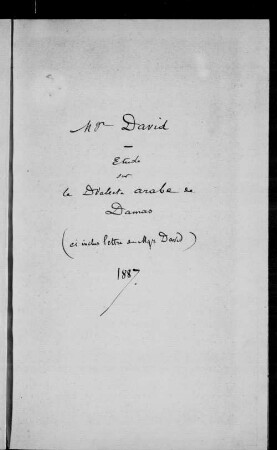 Mgr David
—
Etude
sur
le Dialecte arabe de
Damas
(ci inclus lettre de Mgr David)
1887